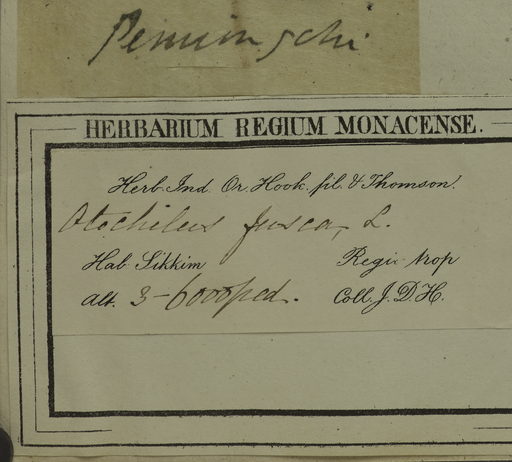 Pemiongchi
HERBARIUM REGIUM MONACENSE.
Herb. Ind. Or. Hook. fil. & Thomson.
Otochilus fusca, L.
Hab. Sikkim Regio trop
Alt. 3-6000 ped. Coll. J. D. H.